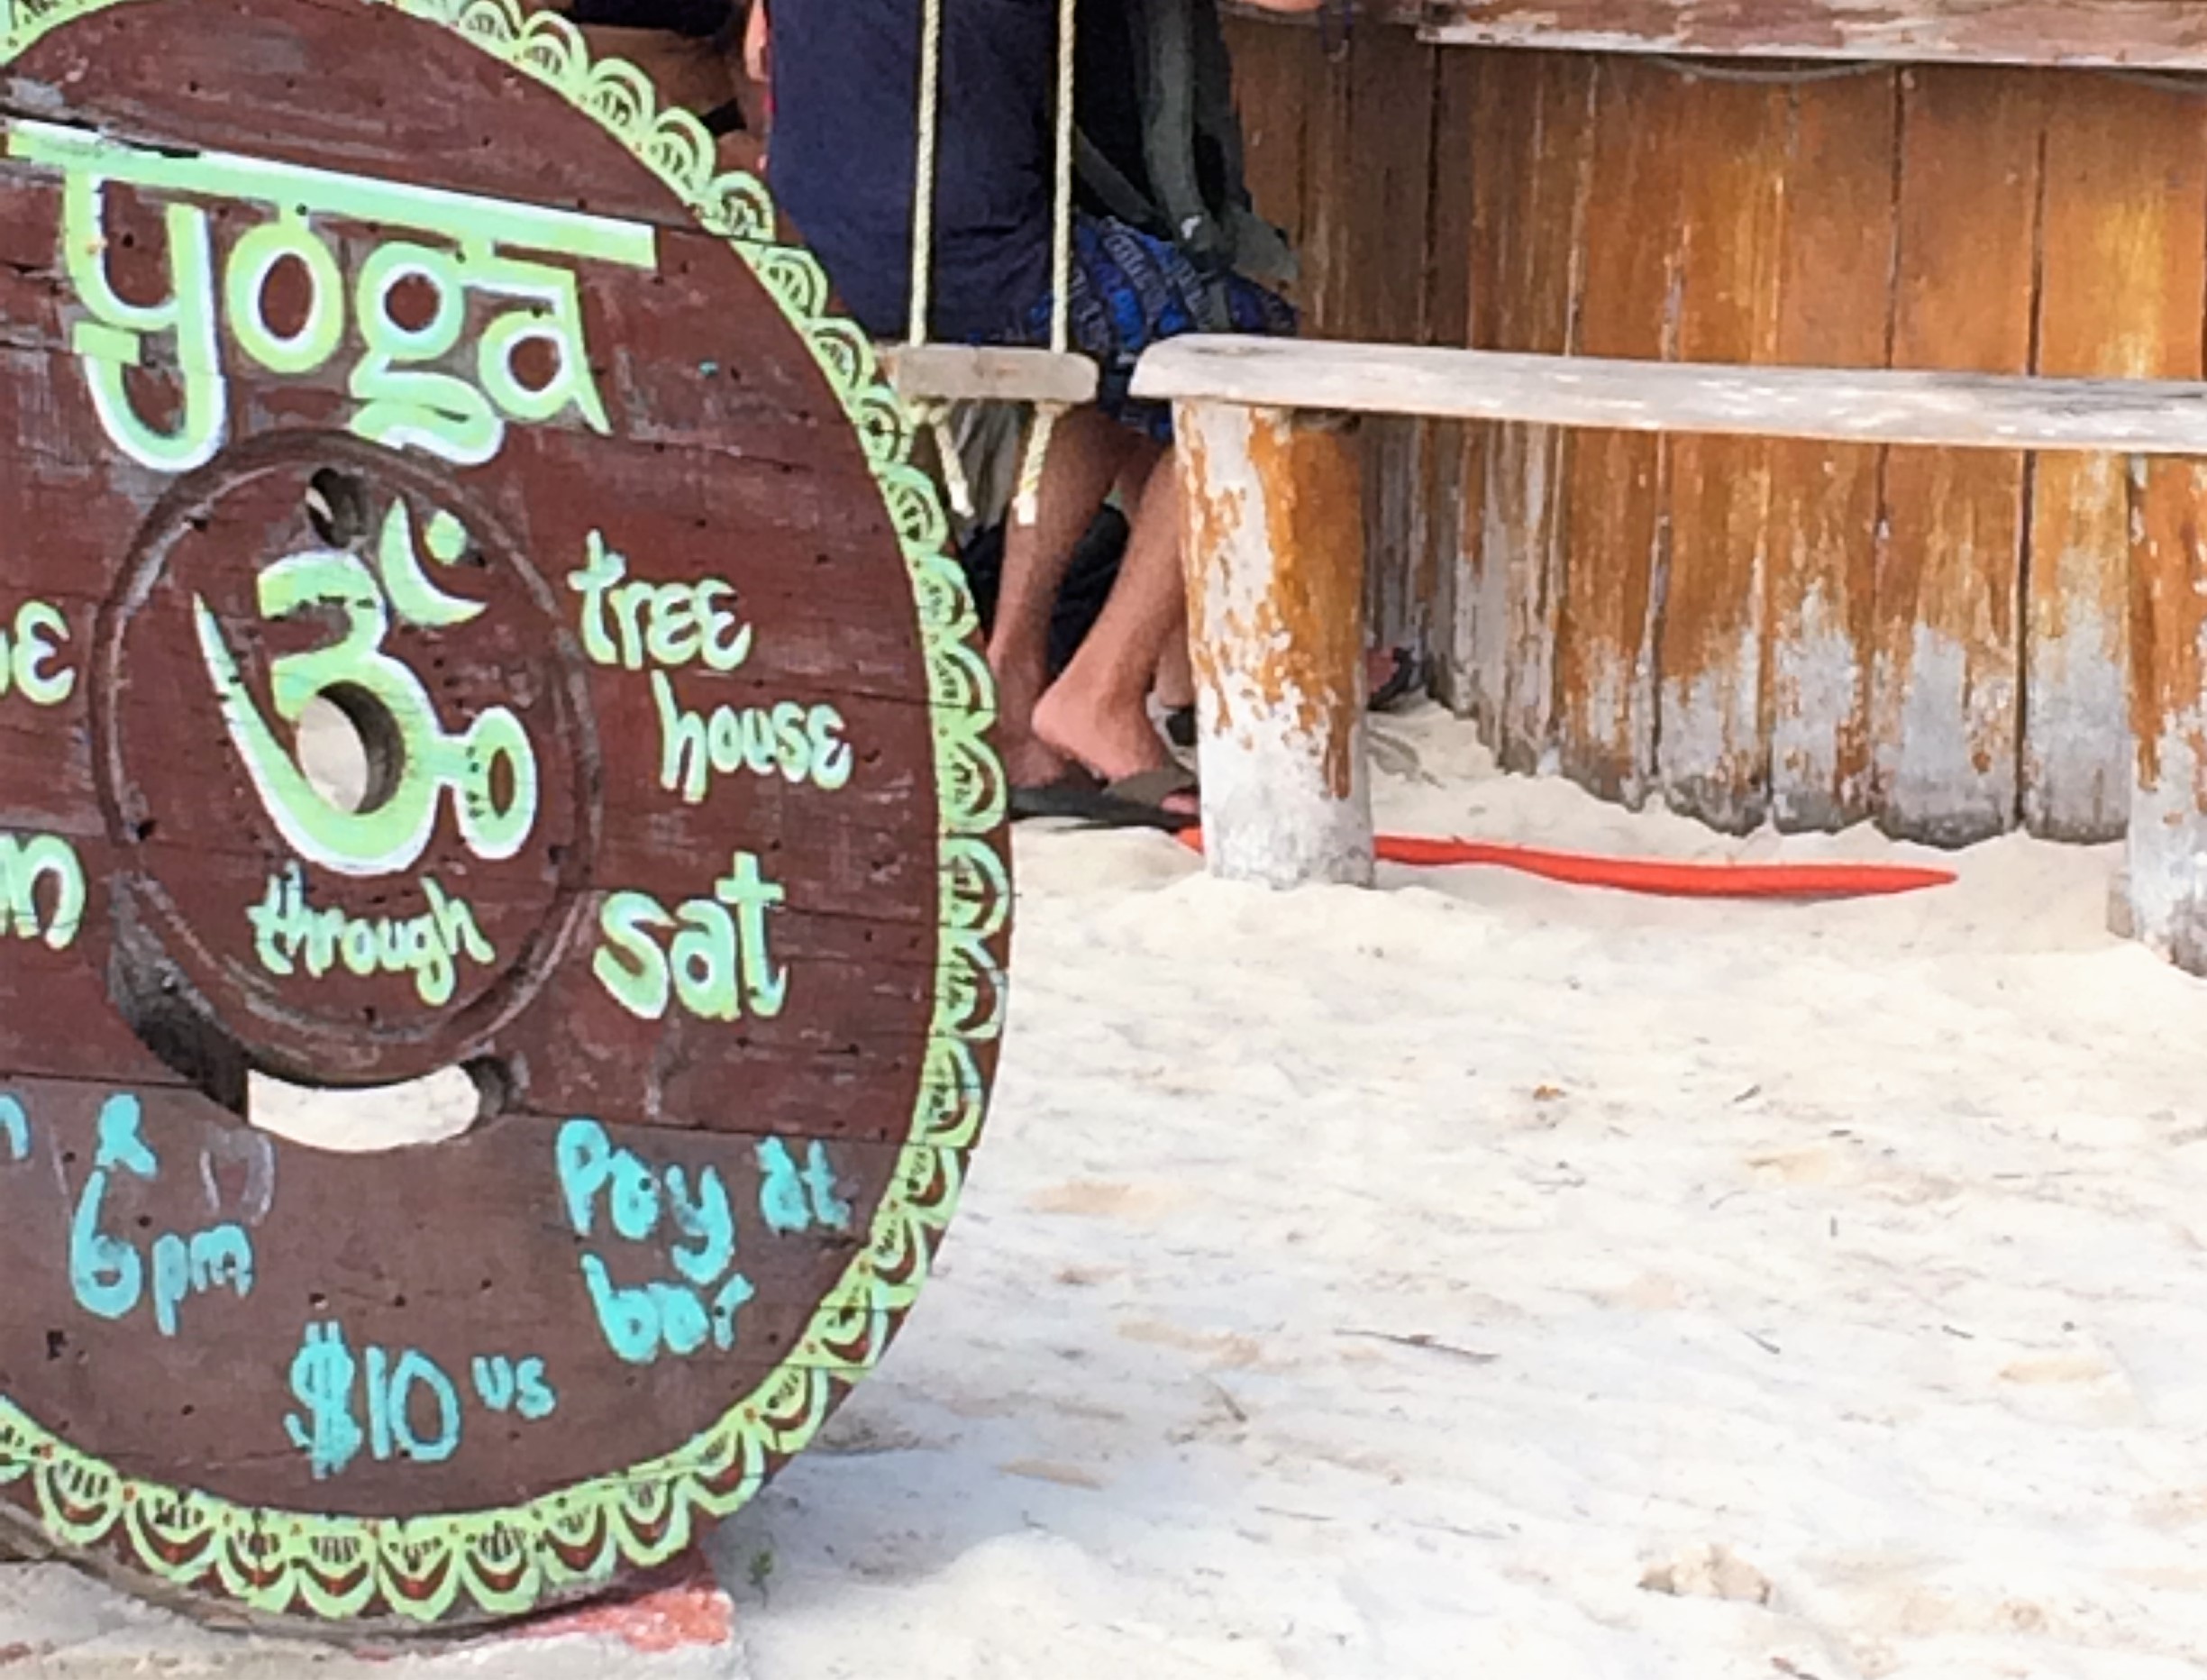 yoga
ॐ
tree
house
through
sat
&
6pm
Pay at
bar
$10 us